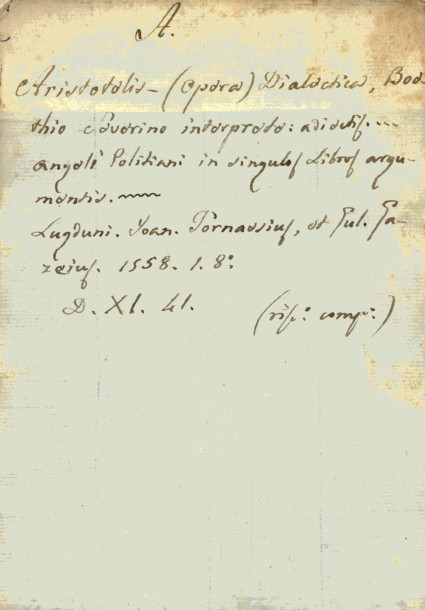 A.
Aristotelis - (Opera) Dialectica, Boe-
thio Severino interprete: adiectis
Angeli Politiani in singulos Libros argu-
mentis.
Lugduni. Joan. Tornaesius, et Gul. Ga-
zeius. 1558. 1. 8.º
D. XI. 41.
(risº. compº.)